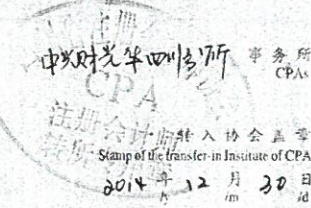 中兴财光华四川分所 事务所
CPAs
CPA
注册会计师
转所专用章
转入协会盖章
Stamp of the transfer-in Institute of CPA
2014 年 12 月 30 日
/y /m /d